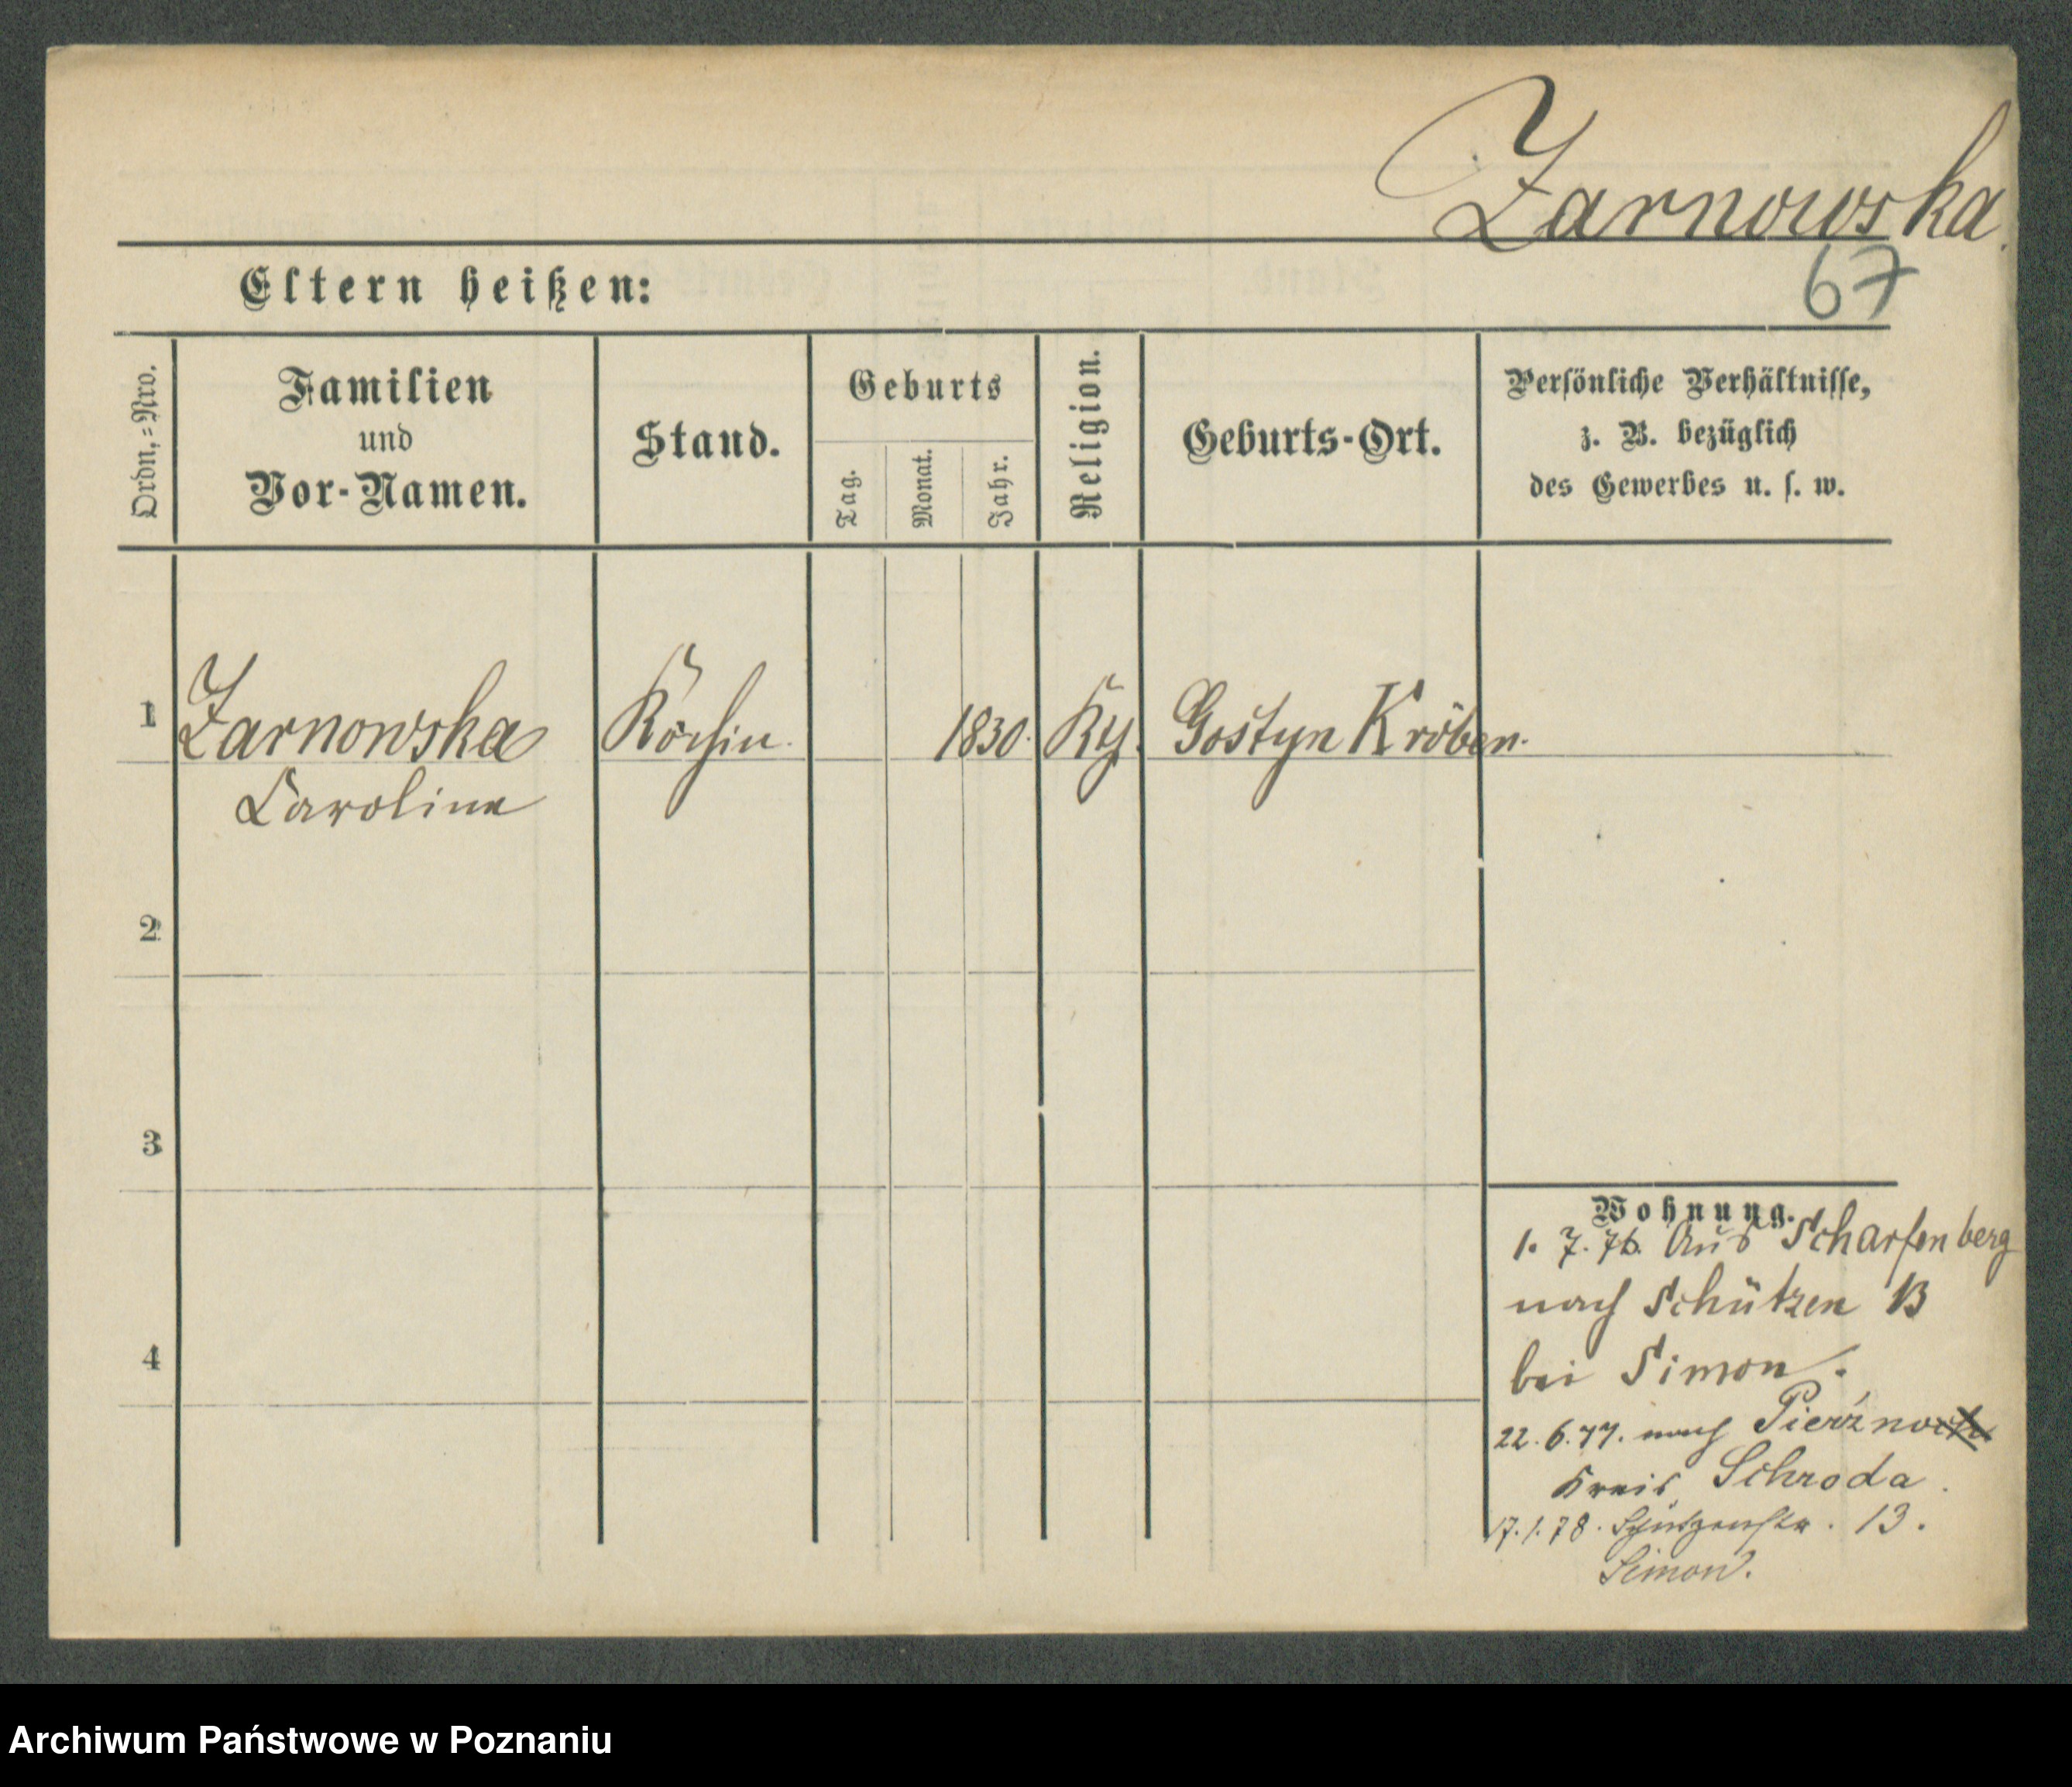 Zarnowska.
67
Eltern heißen:
Ordn.=Nro.
Familien
und
Vor-Namen.
Stand.
Geburts
Tag.
Monat.
Jahr.
Religion.
Geburts-Ort.
Persönliche Verhältnisse,
z. B. bezüglich
des Gewerbes u. s. w.
1
Zarnowska
Caroline
Köchin.
1830.
Gostyn Kröben.
2
3
4
Wohnung.
1. 7. 76. Aus Scharfenberg
nach Schützen 13
bei Simon.
22. 6. 77. nach
Kreis Schroda.
17. 1. 78. Schützenstr. 13.
Simon.
Archiwum Państwowe w Poznaniu